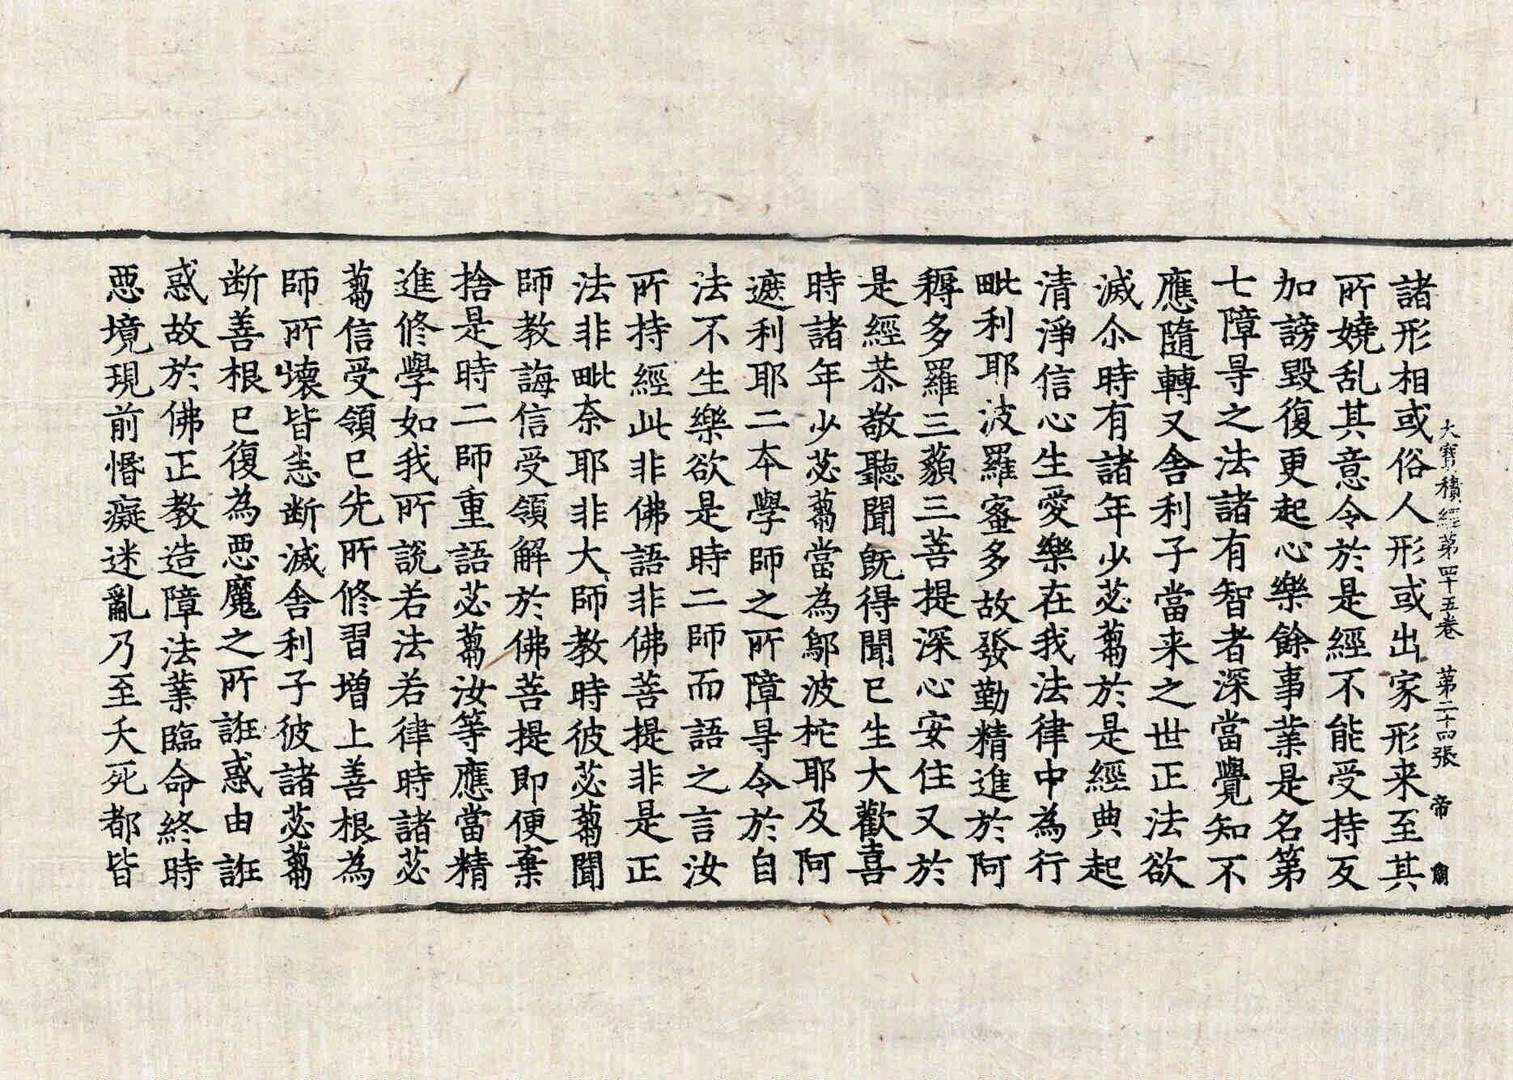 大寶積經第四十五卷 第二十四張 帝
諸形相或俗人形或出家形来至其
所嬈乱其意令於是經不能受持反
加謗毀復更起心樂餘事業是名第
七障㝵之法諸有智者深當覺知不
應隨轉又舍利子當来之世正法欲
滅尒時有諸年少苾蒭於是經典起
清淨信心生愛樂在我法律中為行
毗利耶波羅蜜多故發勤精進於阿
耨多羅三藐三菩提深心安住又於
是經恭敬聽聞旣得聞已生大歡喜
時諸年少苾蒭當為鄔波柁耶及阿
遮利耶二夲學師之所障㝵令於自
法不生樂欲是時二師而語之言汝
所持經此非佛語非佛菩提非是正
法非毗奈耶非大師教時彼苾蒭聞
師教誨信受領解於佛菩提即便棄
捨是時二師重語苾蒭汝等應當精
進修學如我所說若法若律時諸苾
蒭信受領已先所修習增上善根為
師所壞皆悉断滅舍利子彼諸苾蒭
断善根已復為惡魔之所誑惑由誑
惑故於佛正教造障法業臨命終時
惡境現前惛癡迷亂乃至夭死都皆